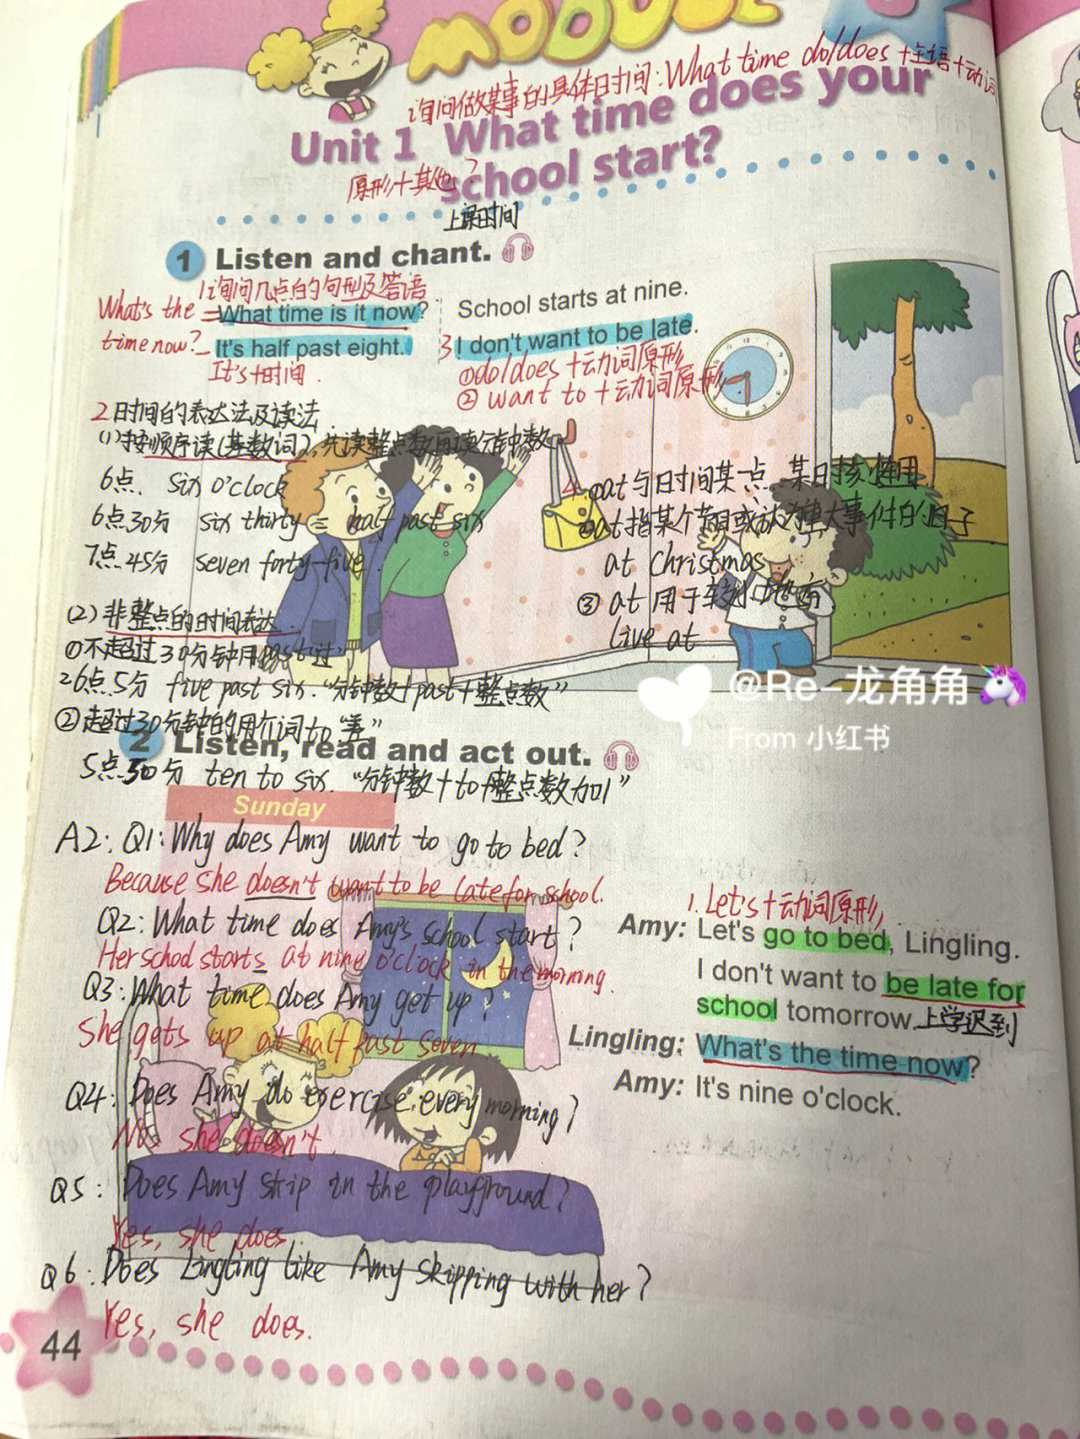 MODULE
询问做某事的具体时间:What time do/does+主语+动词
Unit 1 What time does your
school start?
原形+其他?
上课时间
1 Listen and chant.
1询问几点的句型及答语
What's the = What time is it now?
time now? It's half past eight.
It's+时间.
School starts at nine.
3 I don't want to be late.
①do/does+动词原形
② want to + 动词原形
2时间的表达法及读法
(1)按顺序读(基数词),先读整点数再读分钟数
6点. Six o'clock
6点30分 six thirty = half past six
7点45分 seven forty-five.
(2)非整点的时间表达
①不超过30分钟用past"过"
6点5分 five past six. "分钟数+past+整点数"
②超过30分钟的用介词to "差"
at与时间某一点、某时刻使用
at指某个节日或认为重大事件的日子
at Christmas
③ at 用于较小地方
live at
@Re-龙角角
From 小红书
2 Listen, read and act out.
5点50分 ten to six. "分钟数+to+整点数加1"
Sunday
A2: Q1: Why does Amy want to go to bed?
Because she doesn't want to be late for school.
Q2: What time does Amy's school start?
Her school starts at nine o'clock in the morning.
Q3: What time does Amy get up?
She gets up at half past seven
Q4: Does Amy do exercise every morning?
No, she doesn't.
Q5: Does Amy skip in the playground?
Yes, she does.
Q6: Does Lingling like Amy skipping with her?
Yes, she does.
1. Let's+动词原形,
Amy: Let's go to bed, Lingling.
I don't want to be late for
school tomorrow. 上学迟到
Lingling: What's the time now?
Amy: It's nine o'clock.
44